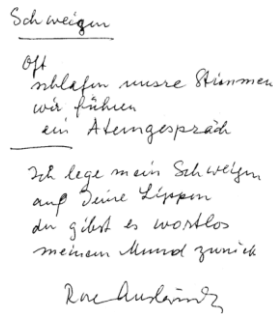 Schweigen
Oft
schlafen unsre Stimmen
wir führen
ein Atemgespräch
Ich lege mein Schweigen
auf deine Lippen
du gibst es wortlos
meinem Mund zurück
Rose Ausländer